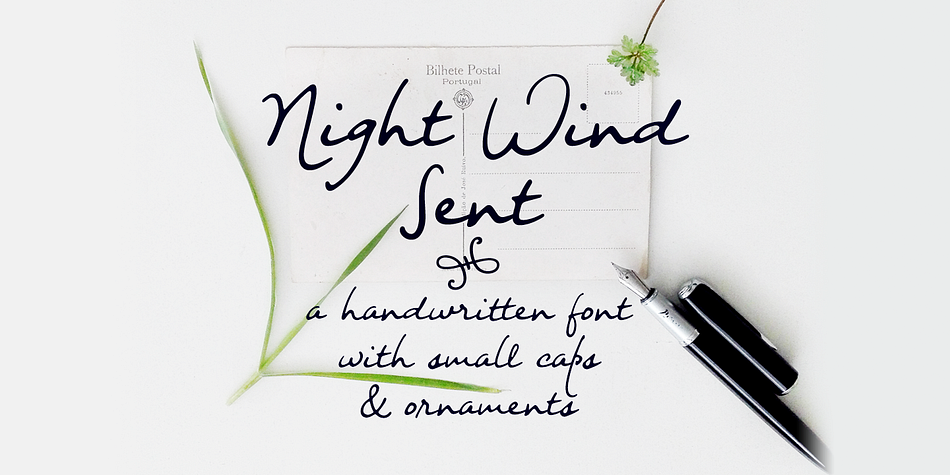 Bilhete Postal
Portugal
Night Wind
Sent
a handwritten font
with small caps
& ornaments